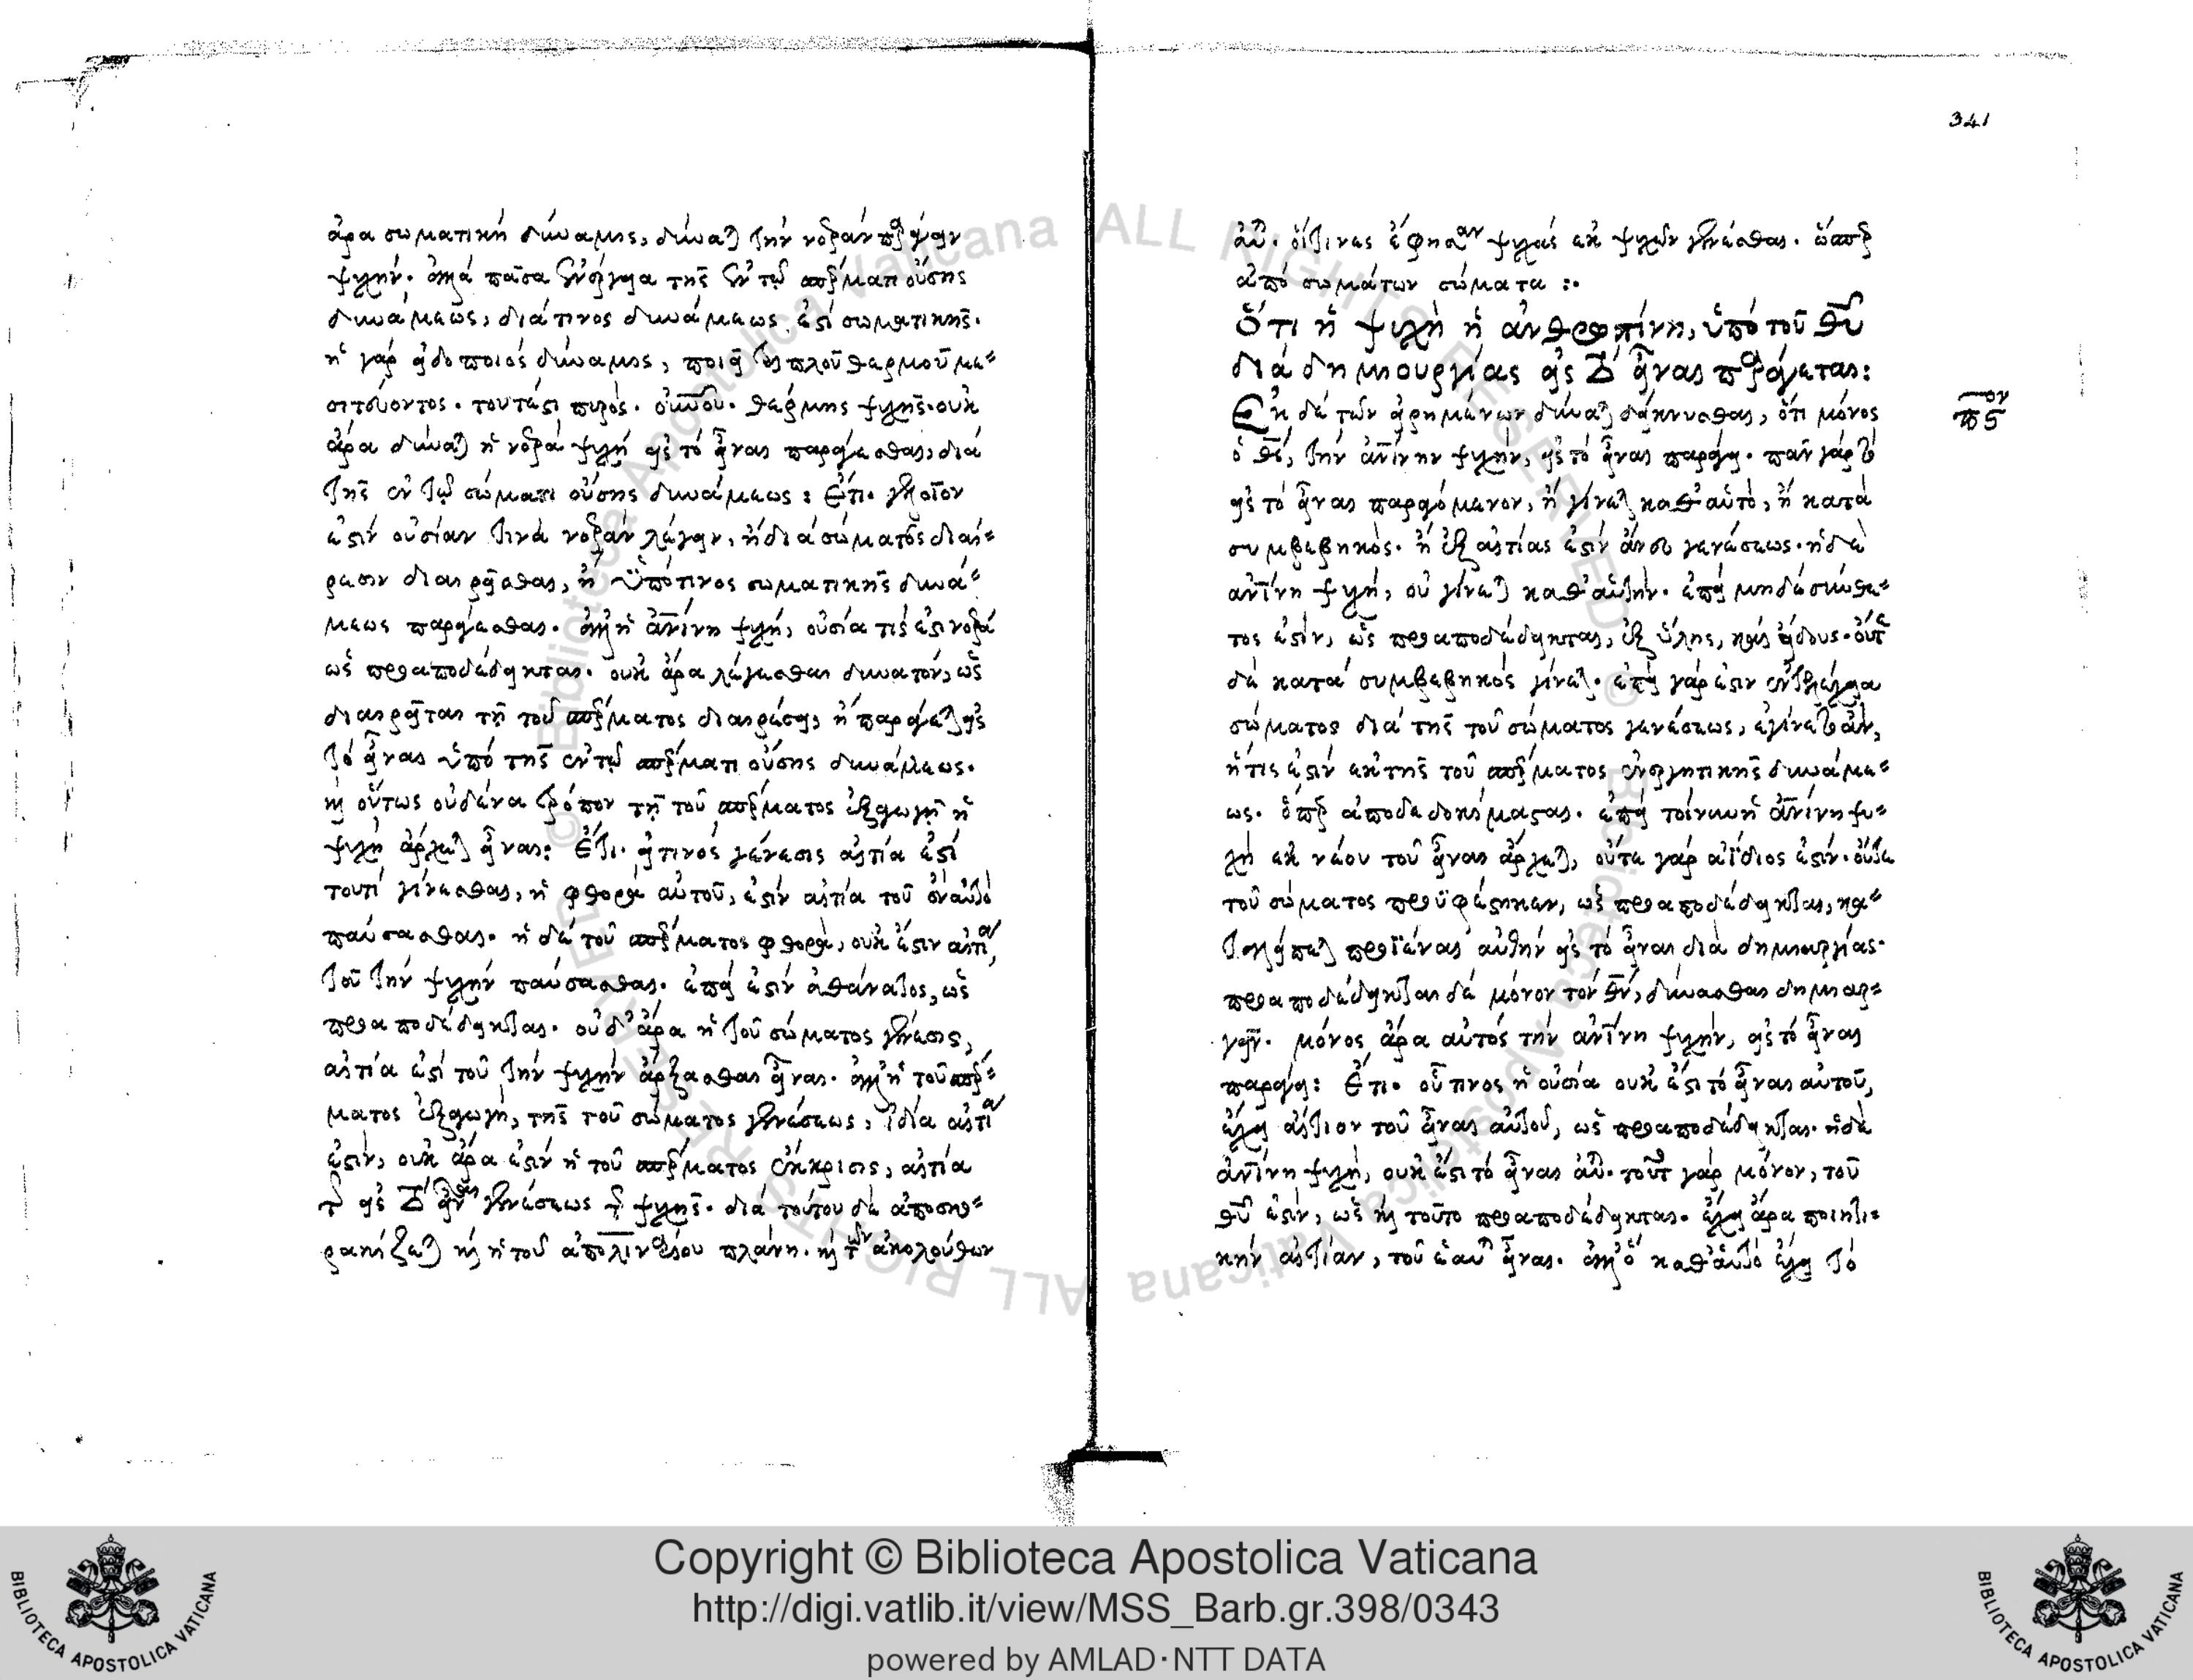 ἄρα σωματικὴ δύναμις, δύναται τὴν νοερὰν παράγειν
ψυχήν. ἀλλὰ πᾶσα ἐνέργεια τῆς ἐν τῷ σπέρματι οὔσης
δυνάμεως, διά τινος δυνάμεως ἐστὶ σωματικῆς.
ἡ γὰρ εἰδοποιὸς δύναμις, ποιεῖ
σιτεύοντος. τουτέστι πυρός. θέρμης ψυχῆς. οὐκ
ἄρα δύναται ἡ νοερὰ ψυχὴ εἰς τὸ εἶναι παράγεσθαι, διὰ
τῆς ἐν τῷ σώματι οὔσης δυνάμεως: Ἔτι. γελοῖον
ἐστὶν οὐσίαν τινὰ νοερὰν λέγειν, ἢ διὰ σώματος διαί=
ρεσιν διαιρεῖσθαι, ἢ ὑπό τινος σωματικῆς δυνά=
μεως παράγεσθαι. ἀλλ' ἡ ἀνίνη ψυχή, οὐσία τίς ἐστι νοερά
ὡς προαποδέδεικται. οὐκ ἄρα λέγεσθαι δυνατόν, ὡς
διαιρεῖται τῇ τοῦ σπέρματος διαιρέσει, ἢ παράγεται εἰς
τὸ εἶναι ὑπὸ τῆς ἐν τῷ σπέρματι οὔσης δυνάμεως.
καὶ οὕτως οὐδένα τρόπον τῇ τοῦ σπέρματος ἐξαγωγῇ ἡ
ψυχὴ ἄρχεται εἶναι: Ἔτι. εἴ τινος γένεσις αἰτία ἐστί
τουτὶ γίνεσθαι, ἡ φθορὰ αὐτοῦ, ἐστὶν αἰτία τοῦ αὐτὸ
παύσασθαι. ἡ δὲ τοῦ σπέρματος φθορά, οὐκ ἔστιν αἰτία,
τοῦ τὴν ψυχὴν παύσασθαι. ἐπεὶ ἐστὶν ἀθάνατος, ὡς
προαποδέδεικται. οὐδ' ἄρα ἡ τοῦ σώματος γένεσις,
αἰτία ἐστὶ τοῦ τὴν ψυχὴν ἄρξασθαι εἶναι. ἀλλ' ἡ τοῦ σπέρ=
ματος ἐξαγωγή, τῆς τοῦ σώματος γενέσεως, ἰδία αἰτία
ἐστίν, οὐκ ἄρα ἐστὶν ἡ τοῦ σπέρματος ἔκκρισις, αἰτία
τῆς εἰς τὸ εἶναι γενέσεως τῆς ψυχῆς. διὰ τούτου δὲ ἀποστο=
ρακίζεται καὶ ἡ τοῦ ἀπολιναρίου πλάνη. καὶ τῶν ἀκολούθων
341
αὐτοῦ. οἵτινες ἔφησαν ψυχὰς ἐκ ψυχῶν γενέσθαι. ὥσπερ
ἀπὸ σωμάτων σώματα :.
Ὅτι ἡ ψυχὴ ἡ ἀνθρωπίνη, ὑπὸ τοῦ θυ
διὰ δημιουργίας εἰς τὸ εἶναι παράγεται:
πϛον
Ἐκ δὲ τῶν εἰρημένων δύναται δείκνυσθαι, ὅτι μόνος
ὁ θς, τὴν ἀνίνην ψυχήν, εἰς τὸ εἶναι παράγει. πᾶν γὰρ τὸ
εἰς τὸ εἶναι παραγόμενον, ἢ γίνεται καθ' αὑτό, ἢ κατὰ
συμβεβηκός. ἢ ἐξ αἰτίας ἐστὶν ἄνευ γενέσεως. ἡ δὲ
ἀνίνη ψυχή, οὐ γίνεται καθ' αὑτήν. ἐπεὶ μηδὲ σύνθε=
τος ἐστίν, ὡς προαποδέδεικται, ἐξ ὕλης, καὶ εἴδους. οὔτε
δὲ κατὰ συμβεβηκὸς γίνεται. ἐπεὶ γάρ ἐστιν ἐντελέχεια
σώματος διὰ τῆς τοῦ σώματος γενέσεως, ἐγίνετο ἄν,
ἥτις ἐστὶν ἐκ τῆς τοῦ σπέρματος ἐνεργητικῆς δυνάμε=
ως. ὅπερ ἀποδεδοκίμασται. ἐπεὶ τοίνυν ἡ ἀνίνη ψυ=
χὴ ἐκ νέου τοῦ εἶναι ἄρχεται, οὔτε γὰρ ἀΐδιος ἐστίν. οὔτε
τοῦ σώματος προϋφέστηκεν, ὡς προαποδέδεικται, κα=
ταλείπεται προϊέναι αὐτὴν εἰς τὸ εἶναι διὰ δημιουργίας.
προαποδέδεικται δὲ μόνον τὸν θν, δύνασθαι δημιουρ=
γεῖν. μόνος ἄρα αὐτὸς τὴν ἀνίνη ψυχήν, εἰς τὸ εἶναι
παράγει: Ἔτι. οὗ τινος ἡ οὐσία οὐκ ἔστι τὸ εἶναι αὐτοῦ,
ἔχει αἴτιον τοῦ εἶναι αὐτοῦ, ὡς προαποδέδεικται. ἡ δὲ
ἀνίνη ψυχή, οὐκ ἔστι τὸ εἶναι αὐτοῦ. τοῦτο γὰρ μόνον, τοῦ
θυ ἐστίν, ὡς καὶ τοῦτο προαποδέδεικται. ἔχει ἄρα ποιητι=
κὴν αἰτίαν, τοῦ ἑαυτῆς εἶναι. ἀλλ' ὃ καθ' αὑτὸ ἔχει τὸ
Copyright © Biblioteca Apostolica Vaticana
http://digi.vatlib.it/view/MSS_Barb.gr.398/0343
powered by AMLAD·NTT DATA
BIBLIOTECA APOSTOLICA VATICANA
BIBLIOTECA APOSTOLICA VATICANA